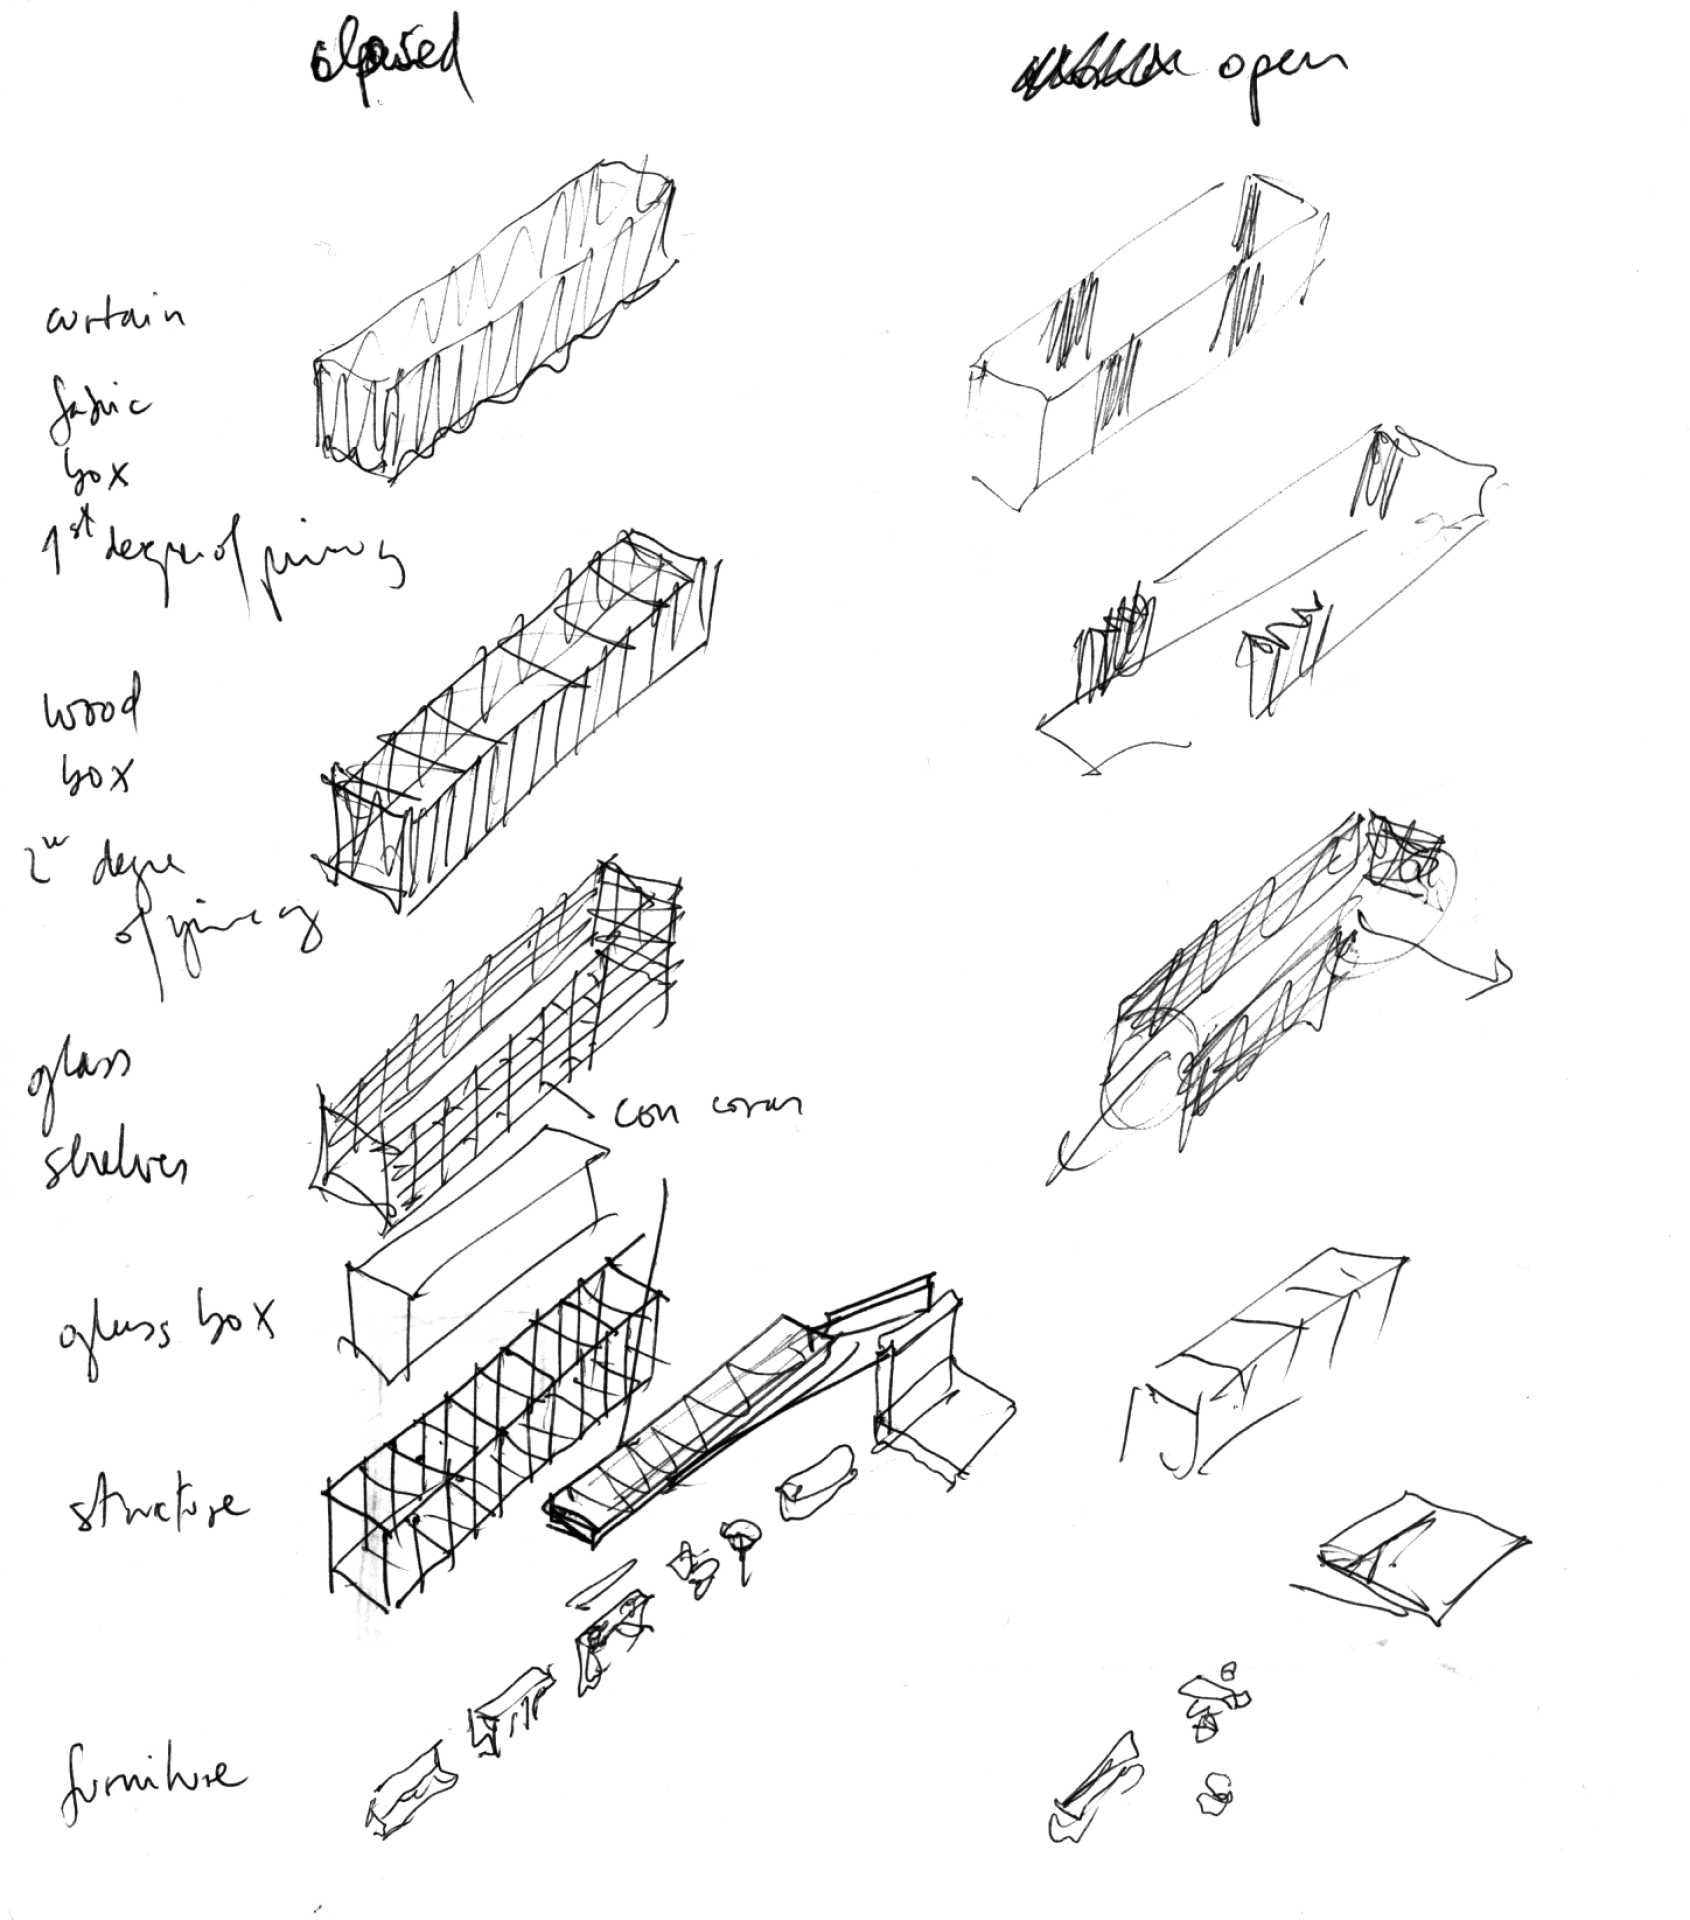 closed
open
curtain
fabric
box
1st degree of privacy
wood
box
degre
of privacy
glass
shelves
glass box
structure
furniture